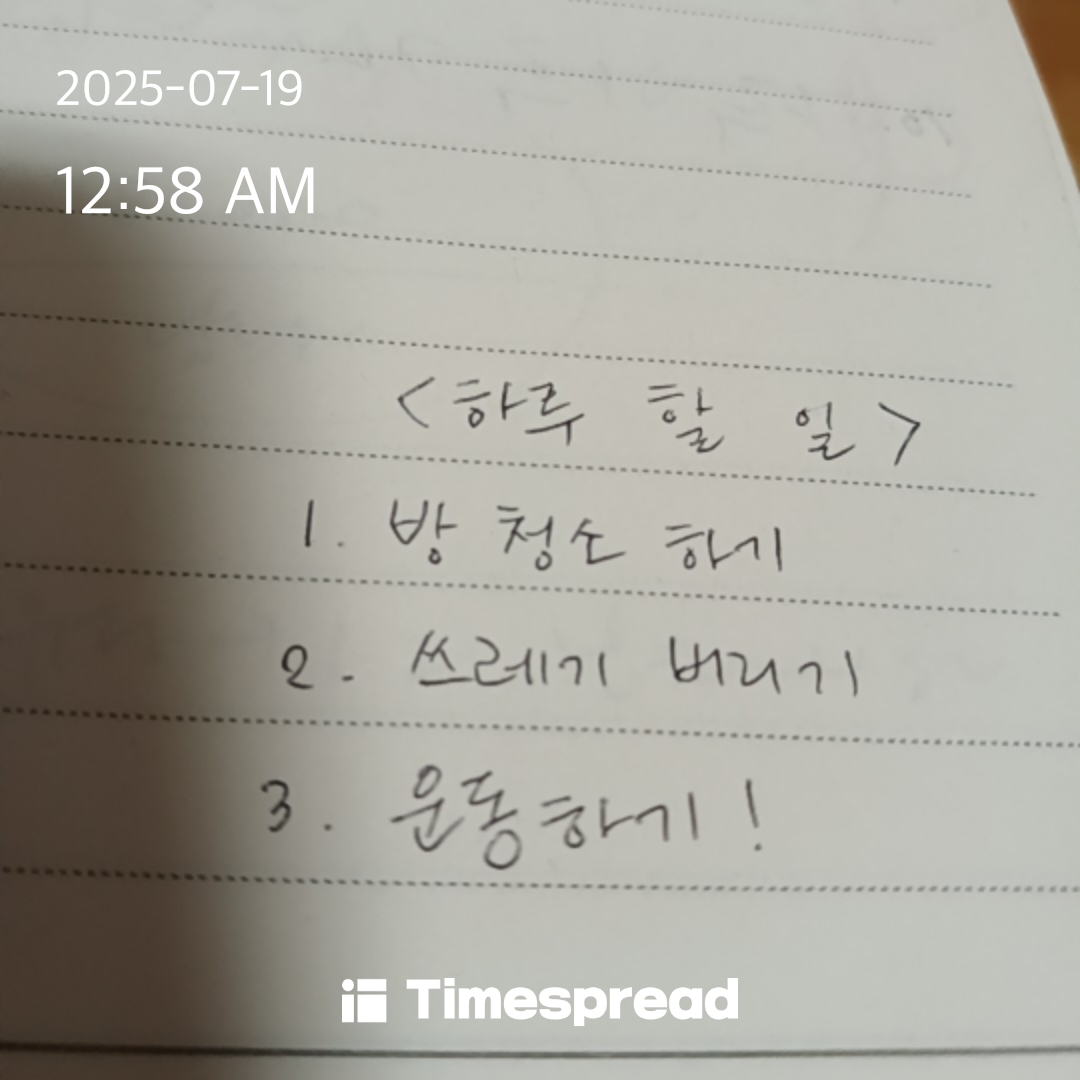 2025-07-19
12:58 AM
<하루 할 일>
1. 방 청소 하기
2. 쓰레기 버리기
3. 운동하기!
Timespread